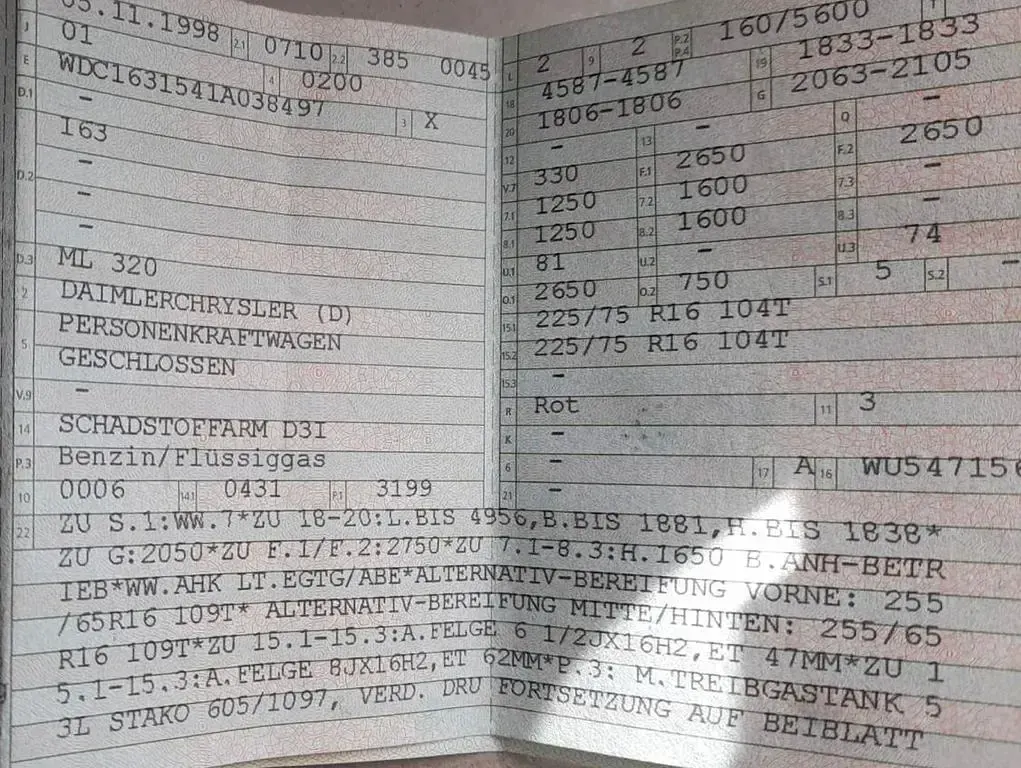 05.11.1998 2.1 0710 2.2 385 0045
J 01 4 0200
E WDC1631541A038497 3 X
D.1 –
163
D.2 –
–
–
D.3 ML 320
2 DAIMLERCHRYSLER (D)
5 PERSONENKRAFTWAGEN
GESCHLOSSEN
V.9 –
14 SCHADSTOFFARM D3I
P.3 Benzin/Flüssiggas
10 0006 14.1 0431 P.1 3199
L 2 9 2 P.2 P.4 160/5600 T
18 4587-4587 19 1833-1833
20 1806-1806 G 2063-2105
12 – 13 – Q –
V.7 330 F.1 2650 F.2 2650
7.1 1250 7.2 1600 7.3 –
8.1 1250 8.2 1600 8.3 –
U.1 81 U.2 – U.3 74
O.1 2650 O.2 750 S.1 5 S.2 –
15.1 225/75 R16 104T
15.2 225/75 R16 104T
15.3 –
R Rot 11 3
K –
6 – 17 A 16 WU547156
21 –
22 ZU S.1:WW.7*ZU 18-20:L.BIS 4956,B.BIS 1881,H.BIS 1838*
ZU G:2050*ZU F.1/F.2:2750*ZU 7.1-8.3:H.1650 B.ANH-BETR
IEB*WW.AHK LT.EGTG/ABE*ALTERNATIV-BEREIFUNG VORNE: 255
/65R16 109T* ALTERNATIV-BEREIFUNG MITTE/HINTEN: 255/65
R16 109T*ZU 15.1-15.3:A.FELGE 6 1/2JX16H2,ET 47MM*ZU 1
5.1-15.3:A.FELGE 8JX16H2,ET 62MM*P.3: M.TREIBGASTANK 5
3L STAKO 605/1097, VERD. DRU FORTSETZUNG AUF BEIBLATT